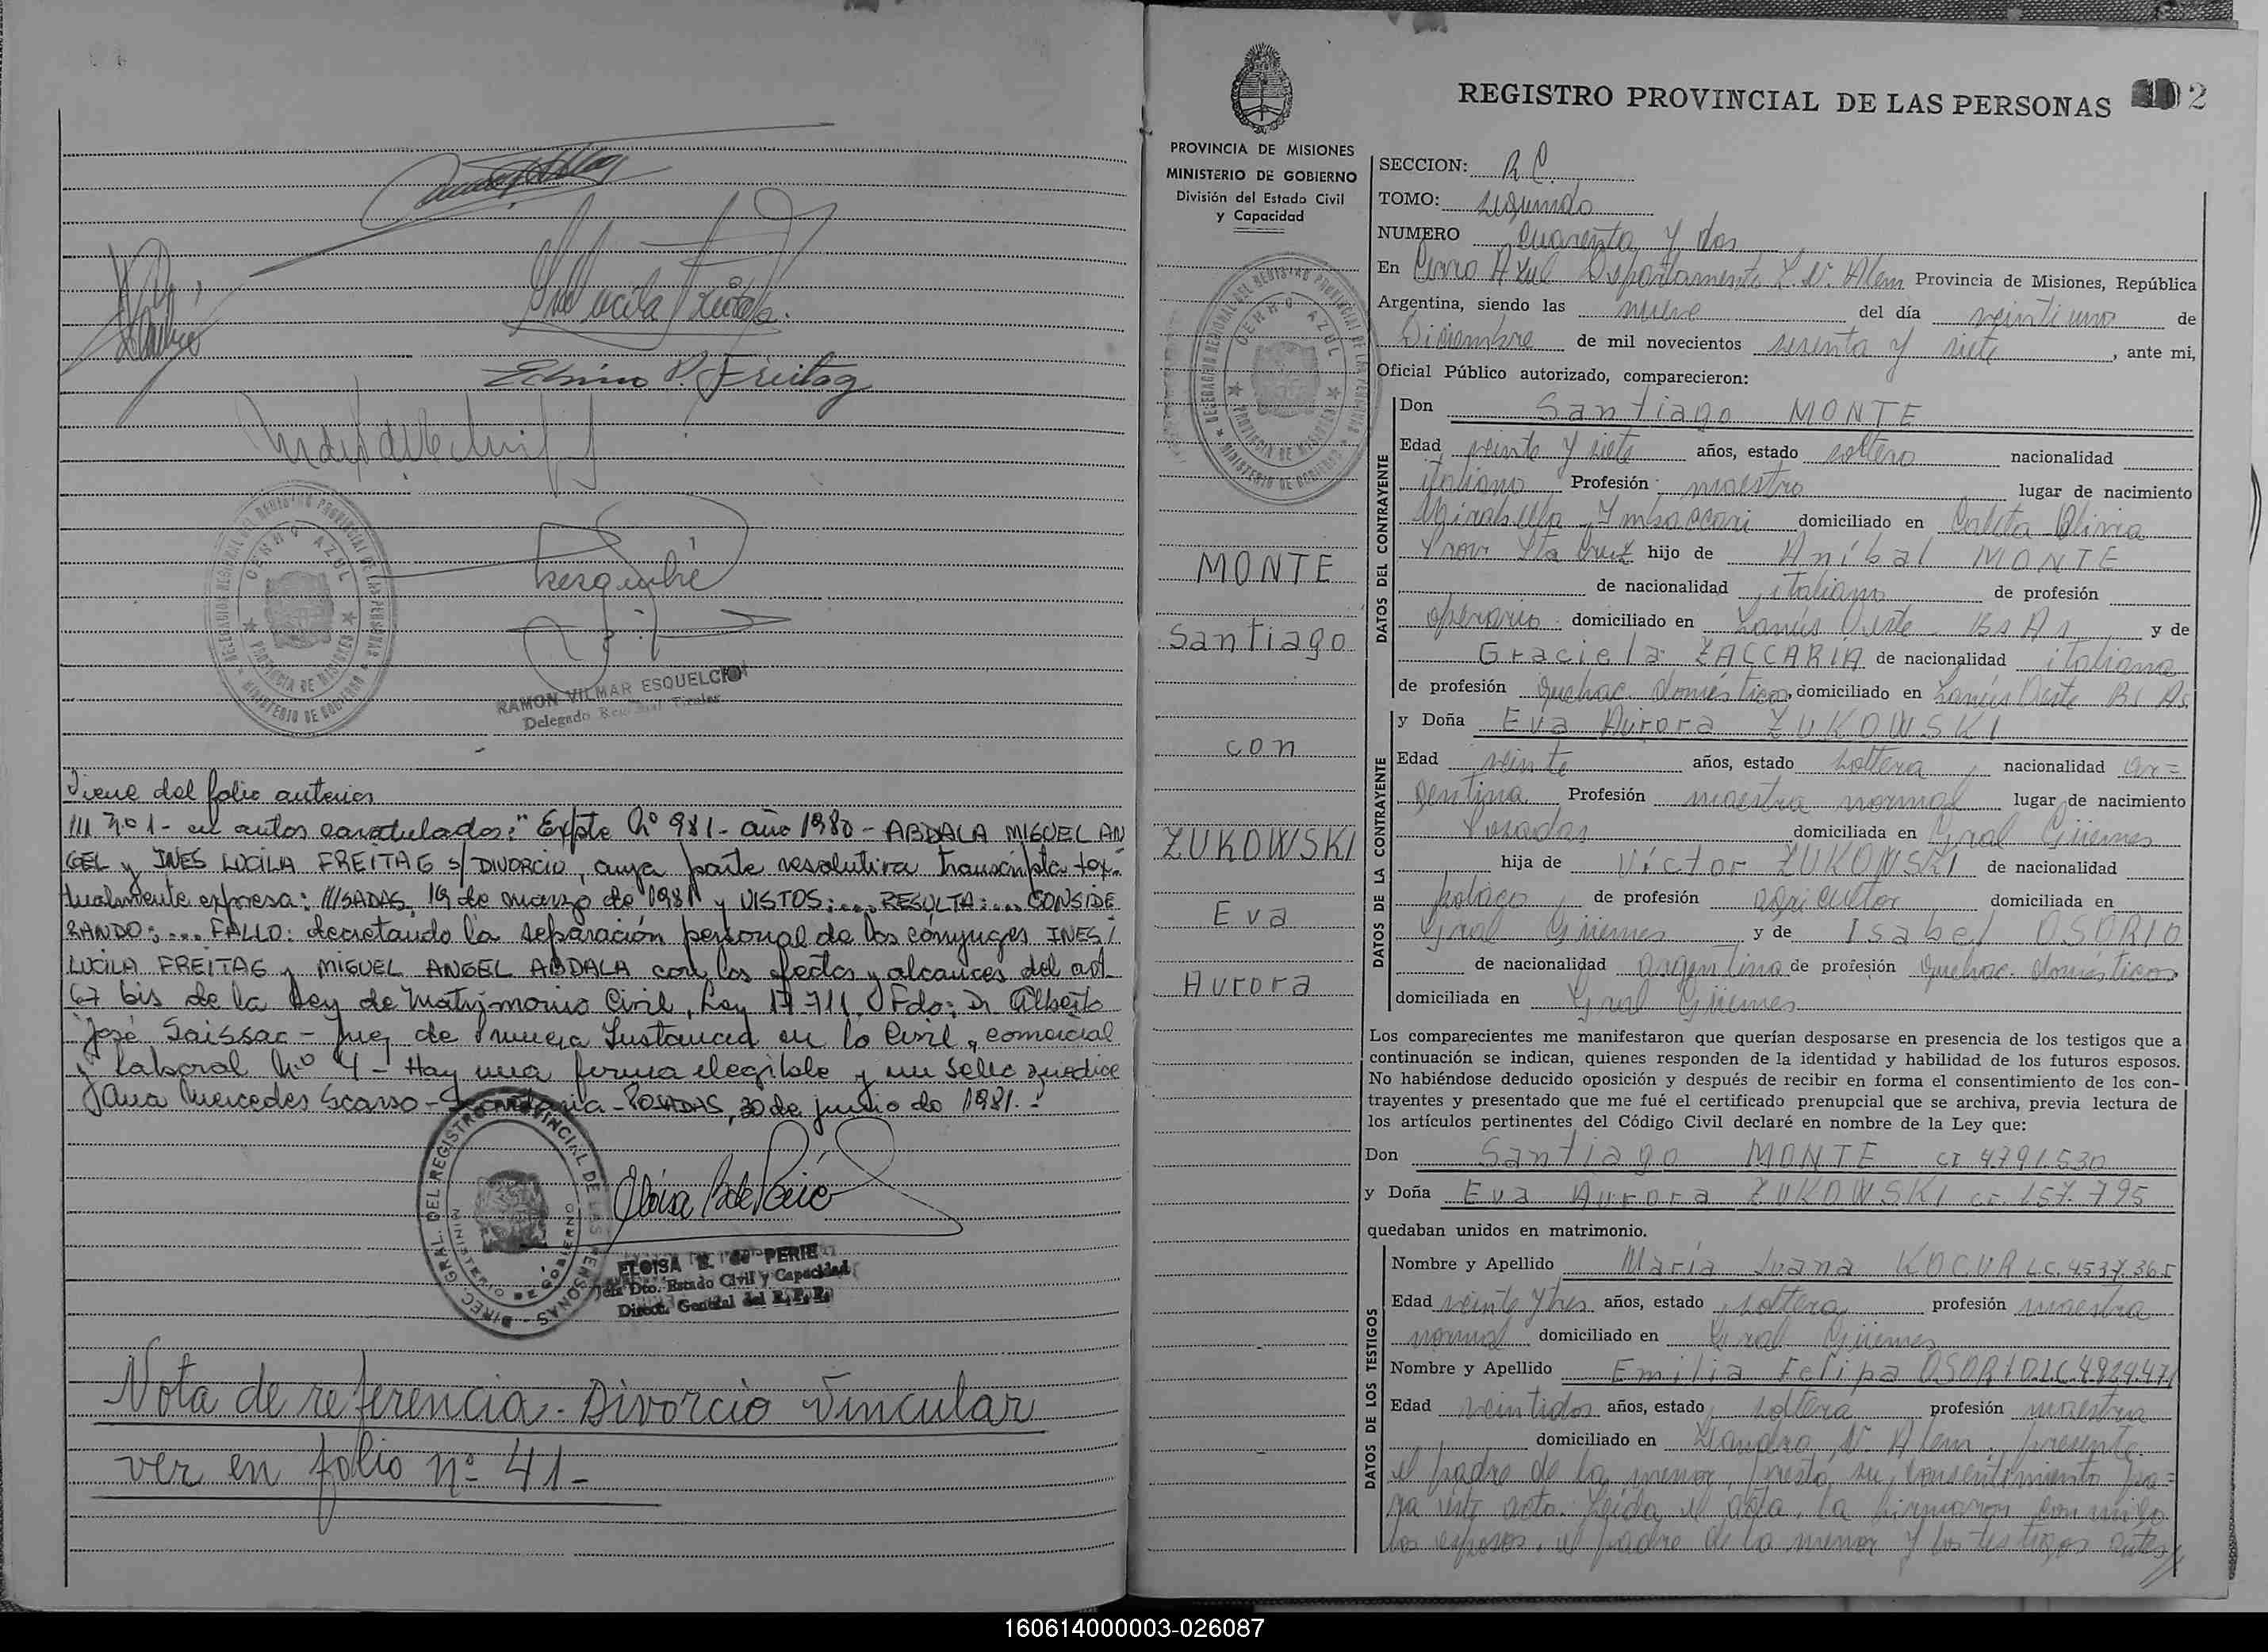 Ines Lucila Freitag.
Edwino P. Freitag
DELEGACION REGIONAL DEL REGISTRO PROVINCIAL DE LAS PERSONAS
CERRO AZUL
PROVINCIA DE MISIONES
MINISTERIO DE GOBIERNO
RAMON VILMAR ESQUELCION
Delegado Regional Titular
Viene del folio anterior
/// nº 1- en autos caratulados: "Expte Nº 981- año 1980 - ABDALA MIGUEL AN
GEL y INES LUCILA FREITAG s/ DIVORCIO, cuya parte resolutiva transcripta tex-
tualmente expresa: ///SADAS, 19 de marzo de 1981 y VISTOS:.... RESULTA:.... CONSIDE
RANDO:.... FALLO: decretando la separación personal de los conyuges INES/
LUCILA FREITAG y MIGUEL ANGEL ABDALA con los efectos y alcances del art.
67 bis de la Ley de Matrimonio Civil, Ley 17.711. Fdo: Dr. Alberto
José Saissac - Juez de Primera Instancia en lo Civil, comercial
y laboral Nº 4 - Hay una firma elegible y un sello que dice
Jana Mercedes Scasso - Secretaria - POSADAS, 30 de junio de 1981.-
DIREC. GRAL. DEL REGISTRO PROVINCIAL DE LAS PERSONAS
MINISTERIO DE GOBIERNO
ELOISA B. de PERIE
Jefa Dto. Estado Civil y Capacidad
Direcc. General del R.P.P.
Nota de referencia - Divorcio Vincular
ver en folio nº 41-
REGISTRO PROVINCIAL DE LAS PERSONAS
2
PROVINCIA DE MISIONES
MINISTERIO DE GOBIERNO
División del Estado Civil
y Capacidad
DELEGACION REGIONAL DEL REGISTRO PROVINCIAL DE LAS PERSONAS
CERRO AZUL
PROVINCIA DE MISIONES
MINISTERIO DE GOBIERNO
MONTE
Santiago
con
ZUKOWSKI
Eva
Aurora
SECCION: R C.
TOMO: segundo
NUMERO cuarenta y dos
En Cerro Azul Departamento L. N. Alem Provincia de Misiones, República
Argentina, siendo las nueve del día veintiuno de
Diciembre de mil novecientos sesenta y siete, ante mi,
Oficial Público autorizado, comparecieron:
DATOS DEL CONTRAYENTE
Don Santiago MONTE
Edad veinte y siete años, estado soltero nacionalidad
italiano Profesión maestro lugar de nacimiento
Mirabella Imbaccari domiciliado en Caleta Olivia
Prov. Sta Cruz hijo de Aníbal MONTE
de nacionalidad italiano de profesión
operario domiciliado en Lanús Oeste - Bs As y de
Graciela ZACCARIA de nacionalidad italiana
de profesión quehac. domésticos, domiciliado en Lanús Oeste Bs As.
DATOS DE LA CONTRAYENTE
y Doña Eva Aurora ZUKOWSKI
Edad veinte años, estado soltera, nacionalidad ar=
gentina Profesión maestra normal lugar de nacimiento
Posadas domiciliada en Gral Güemes
hija de Víctor ZUKOWSKI de nacionalidad
polaco de profesión agricultor domiciliada en
Gral Güemes y de Isabel OSORIO
de nacionalidad argentina de profesión quehac. domésticos
domiciliada en Gral Güemes
Los comparecientes me manifestaron que querían desposarse en presencia de los testigos que a
continuación se indican, quienes responden de la identidad y habilidad de los futuros esposos.
No habiéndose deducido oposición y después de recibir en forma el consentimiento de los con-
trayentes y presentado que me fué el certificado prenupcial que se archiva, previa lectura de
los artículos pertinentes del Código Civil declaré en nombre de la Ley que:
Don Santiago MONTE CI 4.791.530
y Doña Eva Aurora ZUKOWSKI CI. 157.795
quedaban unidos en matrimonio.
DATOS DE LOS TESTIGOS
Nombre y Apellido María Juana KOCUR L.C. 4.537.365
Edad veinte y tres años, estado soltera profesión maestra
normal domiciliado en Gral Güemes
Nombre y Apellido Emilia Felipa OSORIO L.C. 4.929.471
Edad veintidos años, estado soltera profesión maestra
domiciliado en Leandro N. Alem. presente
el padre de la menor, presta su consentimiento pa=
ra este acto. Leida el acta, la firmaron conmigo
los esposos, el padre de la menor y los testigos antes//
160614000003-026087